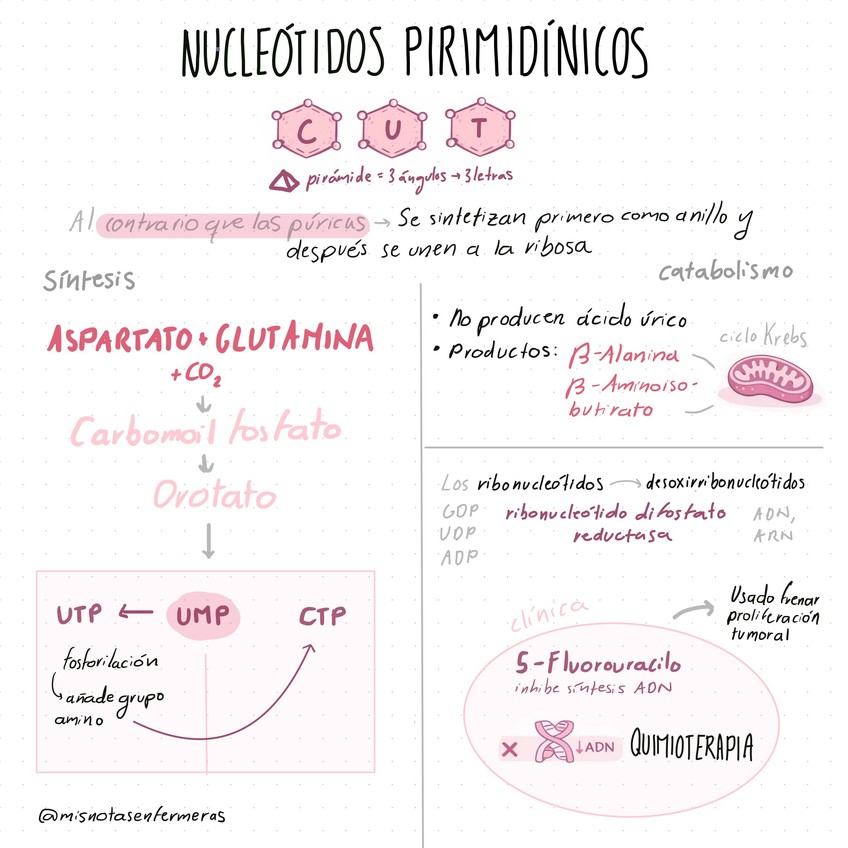 NUCLEÓTIDOS PIRIMIDÍNICOS
C U T
pirámide = 3 ángulos → 3 letras
Al contrario que las púricas → Se sintetizan primero como anillo y
después se unen a la ribosa
Síntesis
ASPARTATO + GLUTAMINA
+ CO2
Carbomoil fosfato
Orotato
UTP ← UMP CTP
fosforilación
añade grupo
amino
@misnotasenfermeras
catabolismo
• No producen ácido úrico
• Productos: β-Alanina
β-Aminoiso-
butirato
ciclo Krebs
Los ribonucleótidos → desoxirribonucleótidos
GDP ribonucleótido difosfato ADN,
UDP reductasa ARN
ADP
clínica
Usado frenar
proliferación
tumoral
5-Fluorouracilo
inhibe síntesis ADN
X ↓ADN QUIMIOTERAPIA